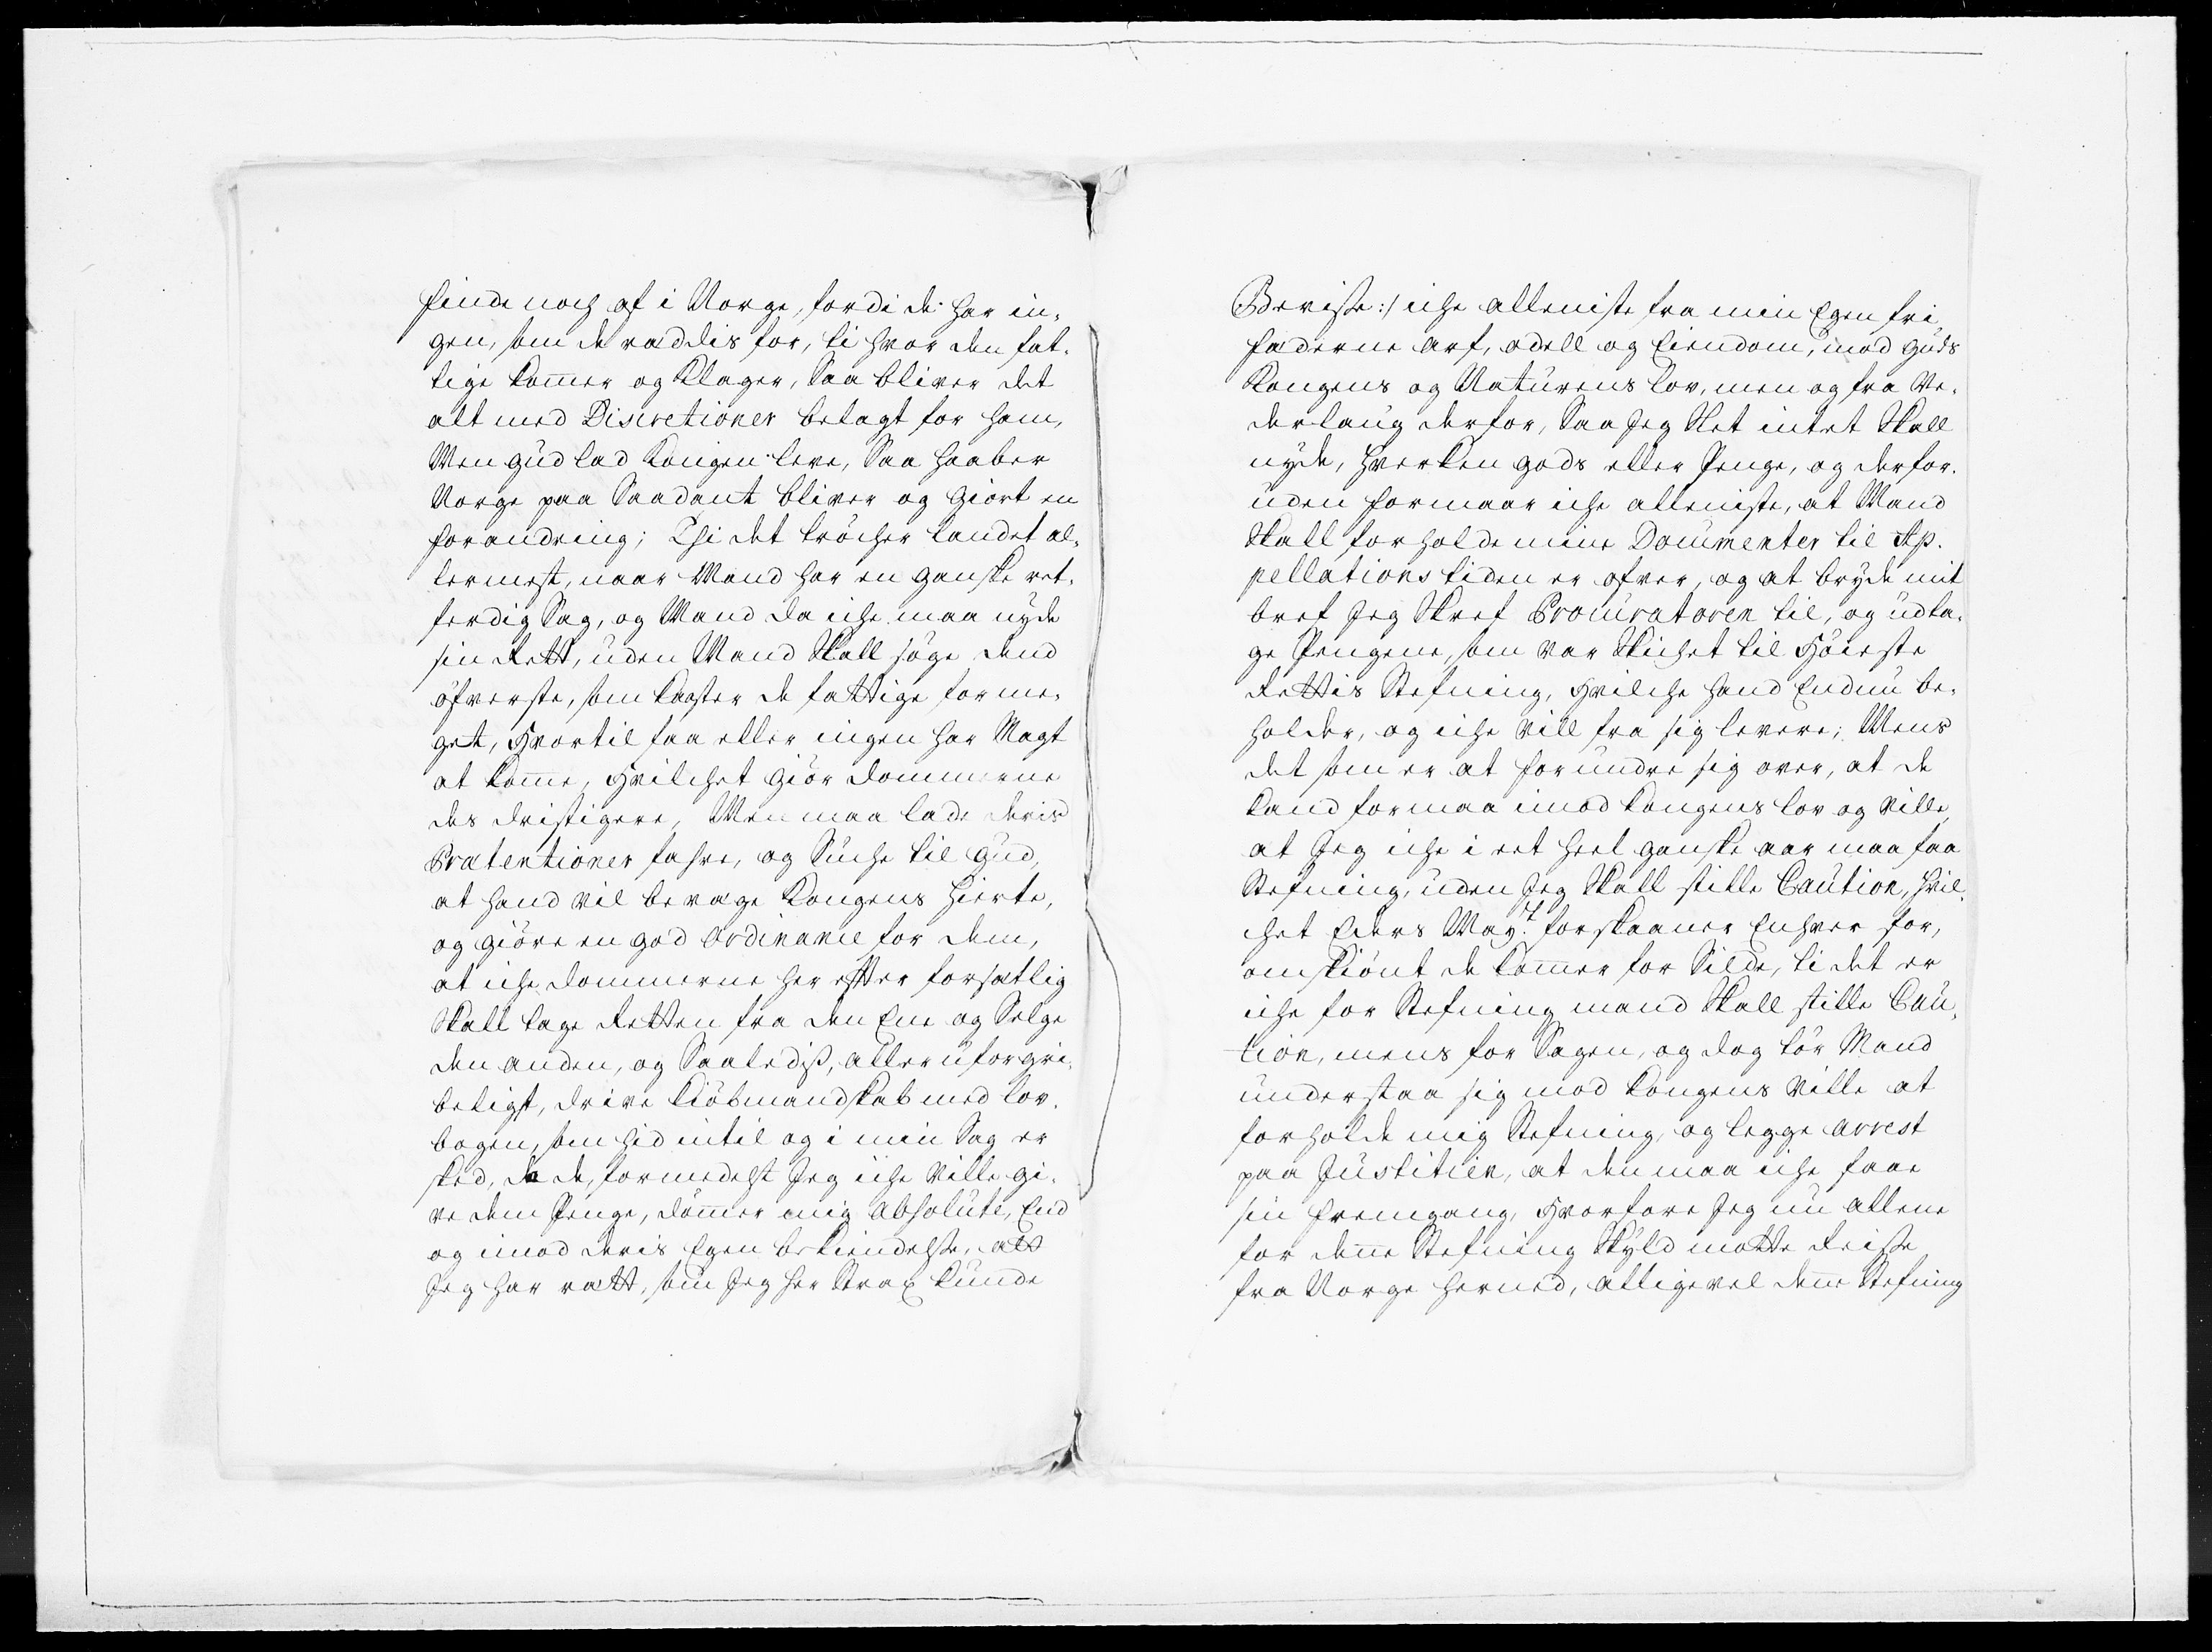 finde noch af i Norge, fordi de har in-
gen, som deræddis for, ti hvor den fat-
tige kommer og klager, Saa bliver det
alt med Discretioner betagt for ham,
Men Gud lad Kongen leve, Saa haaber
Norge paa Saadant bliver og giort en
forandring; Thi det trøcher landet al-
lermest, naar Mand har en ganske ret-
ferdig Sag, og Mand da iche maa nyde
sin Rett, uden Mand Skall søge dend
øfverste, som kaaster de fattige for me-
get, Hvortil faa eller ingen har Magt
at komme, Hvilchet giør dommerne
des dristigere, Men maa lade deris
Prætentioner fahre, og Suche til Gud,
at hand vil bevæge Kongens hierte,
og giøre en god Ordinance for dem,
at iche dommerne her efter forsætlig
Skall tage Retten fra den Ene og Selge
den anden, og Saaledis, aller uforgri-
beligst, drive kiøbmandskab med lov-
bogen, som hid intil og i min Sag er
sked, da de, formedelst Jeg iche ville gi-
ve dem Penge, dømmer mig absolute, End
og imod deris Egen bekiendelse, att
Jeg har rætt, som Jeg her Strax kunde
Bevise :/ iche alleniste fra min Egen fri
fæderne arf, odell og Eiendom, mod Guds
Kongens og Naturens lov, men og fra Ve-
derlaug derfor, Saa Jeg Slet intet Skall
nyde, hverken gods eller Penge, og derfor-
uden formaar iche alleniste, at Mand
Skall forholde mine Documenter til Ap-
pellations tiden er ofver, og at bryde mit
bref Jeg Skref Procuratoren til, og udta-
ge Pengene, som var Skichet til Høieste
Rettis Stefning, Hvilche hand Endnu be-
holder, og iche vill fra sig levere; Mens
det som er at forundre sig over, at de
kand formaa imod kongens lov og ville,
at Jeg iche i eet heel ganske aar maa faa
Stefning, uden Jeg Skall stille Caution, hvil-
chet Eders May.t forskaaner Enhver for,
omskiønt de kommer for Silde, ti det er
iche for Stefning mand Skall stille Cau-
tion, mens for Sagen, og dog tør Mand
understaa sig mod kongens ville at
forholde mig Stefning, og legge arrest
paa Justitien, at den maa iche faae
sin fremgang, Hvorfore Jeg nu allene
for denne Stefning Skyld motte Reise
fra Norge herned, alligevel denne Stefning